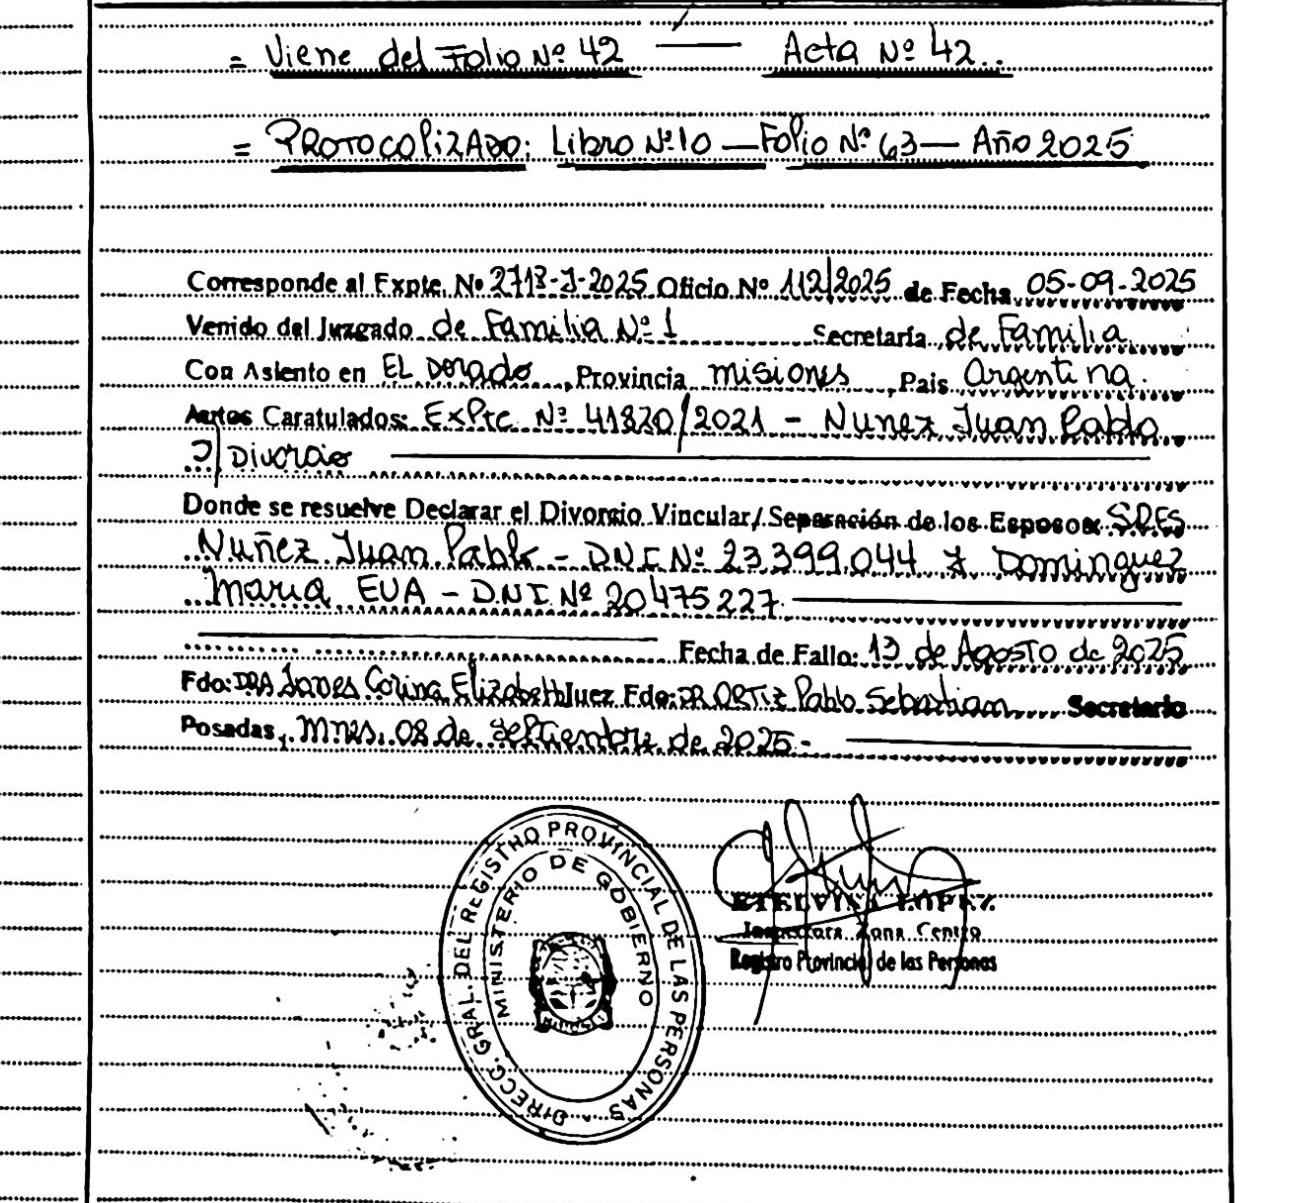 = Viene del Folio Nº 42 — Acta Nº 42..
= PROTOCOLIZADO: Libro Nº 10 — Folio Nº 63 — Año 2025
Corresponde al Expte. Nº 2718-J-2025 Oficio Nº 112/2025 de Fecha 05-09-2025
Venido del Juzgado de Familia Nº 1 Secretaría de Familia
Con Asiento en EL Dorado, Provincia Misiones, Pais Argentina.
Autos Caratulados: Expte. Nº 41820/2021 - Nunez Juan Pablo
S/ Divorcio
Donde se resuelve Declarar el Divorcio Vincular/Separación de los Esposos SRES
Nuñez Juan Pablo - DNI Nº 23.399.044 Y Dominguez
Maria EVA - D.N.I. Nº 20475227
Fecha de Fallo: 13 de Agosto de 2025
Fdo: DRA Corina Elizabeth Juez Fdo: DR ORTIZ Pablo Sebastian Secretario
Posadas, Mnes, 08 de Septiembre de 2025.-
DIRECC. GRAL. DEL REGISTRO PROVINCIAL DE LAS PERSONAS
MINISTERIO DE GOBIERNO
ETELVINA LOPEZ
Inspectora Zona Centro
Registro Provincial de las Personas